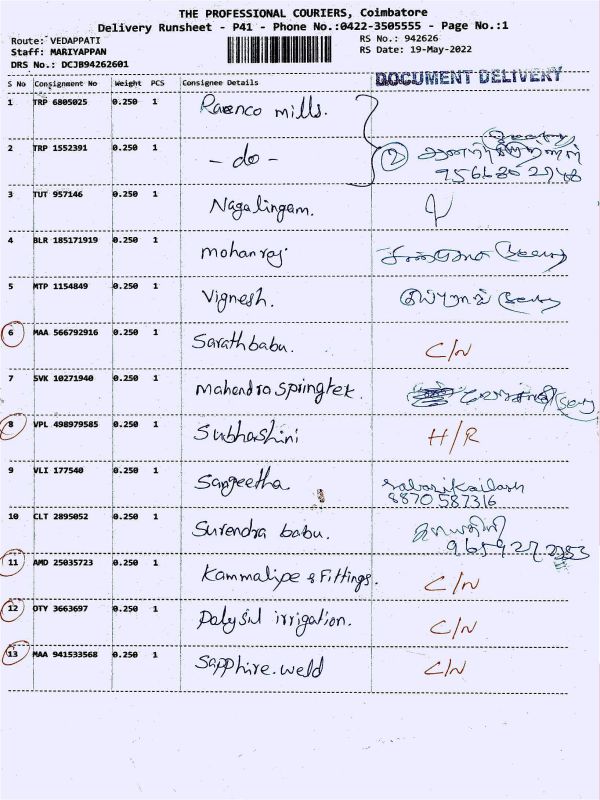 THE PROFESSIONAL COURIERS, Coimbatore
Delivery Runsheet - P41 - Phone No.:0422-3505555 - Page No.:1
Route: VEDAPPATI
RS No.: 942626
Staff: MARIYAPPAN
RS Date: 19-May-2022
DRS No.: DCJB94262601
DOCUMENT DELIVERY
S No Consignment No Weight PCS Consignee Details
1 TRP 6805025 0.250 1 Ravenco mills.
2 TRP 1552391 0.250 1 - do - 2
3 TUT 957146 0.250 1 Nagalingam.
4 BLR 185171919 0.250 1 mohanraj
5 MTP 1154849 0.250 1 Vignesh.
6 MAA 566792916 0.250 1 Sarathbabu. C/N
7 SVK 10271940 0.250 1 Mahendra Springtek.
8 VPL 498979585 0.250 1 Subhashini H/R
9 VLI 177540 0.250 1 Sangeetha sabarikailash
8870587316
10 CLT 2895052 0.250 1 Surendra babu.
11 AMD 25035723 0.250 1 & Fittings. C/N
12 OTY 3663697 0.250 1 irrigation. C/N
13 MAA 941533568 0.250 1 Sapphire.weld C/N